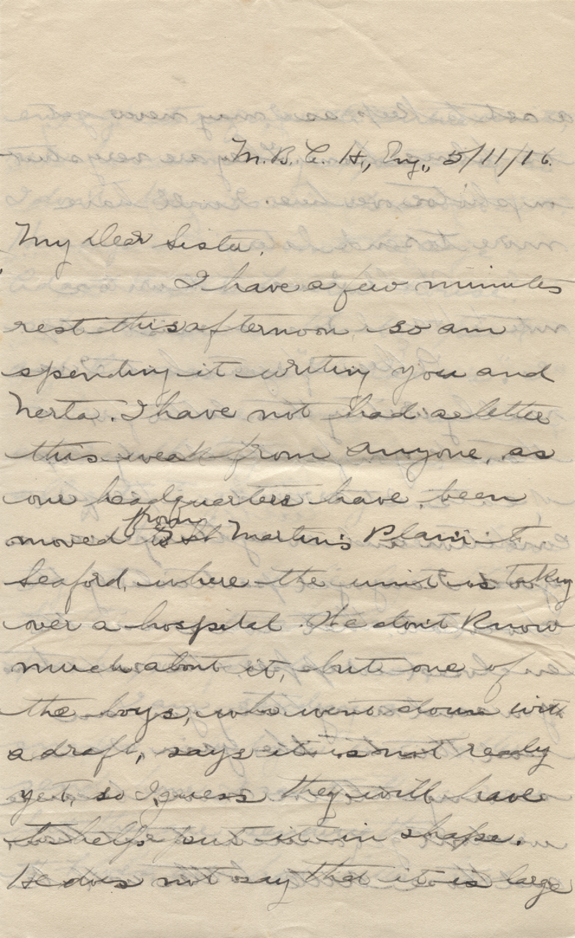 M. B. C. H., Eng., 5/11/16.
My Dear Sister,
I have a few minutes
rest this afternoon so am
spending it writing you and
Nerta. I have not had a letter
this week from anyone, as
our headquarters have been
from
moved St Martin's Plain to
Seaford, where the unit is taking
over a hospital. We don't know
much about it, but one of
the boys, who went down with
a draft, says it is not ready
yet, so I guess they will have
to help put it in shape.
He does not say that it is large